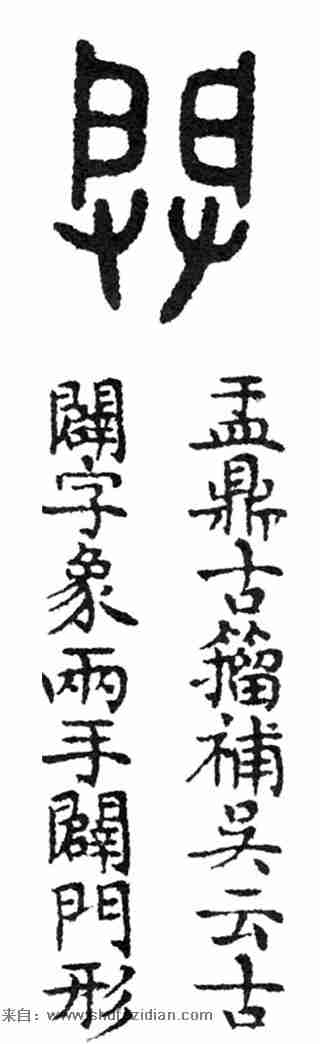 𨳿
盂鼎古籀補吴云古
闢字象兩手闢門形
来自：www.shufazidian.com